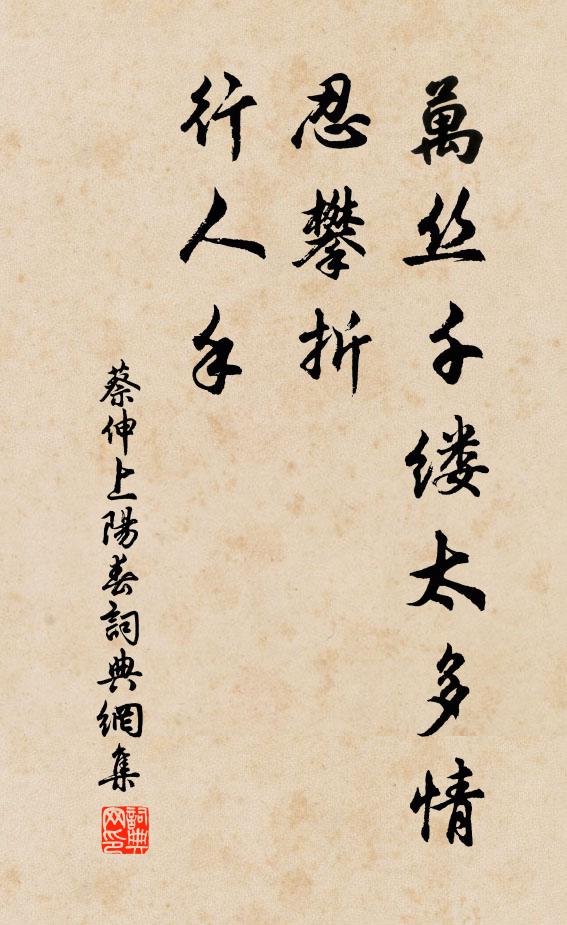 萬丝千缕太多情
忍攀折
行人手
蔡伸上陽春詞典網集
詞典网印